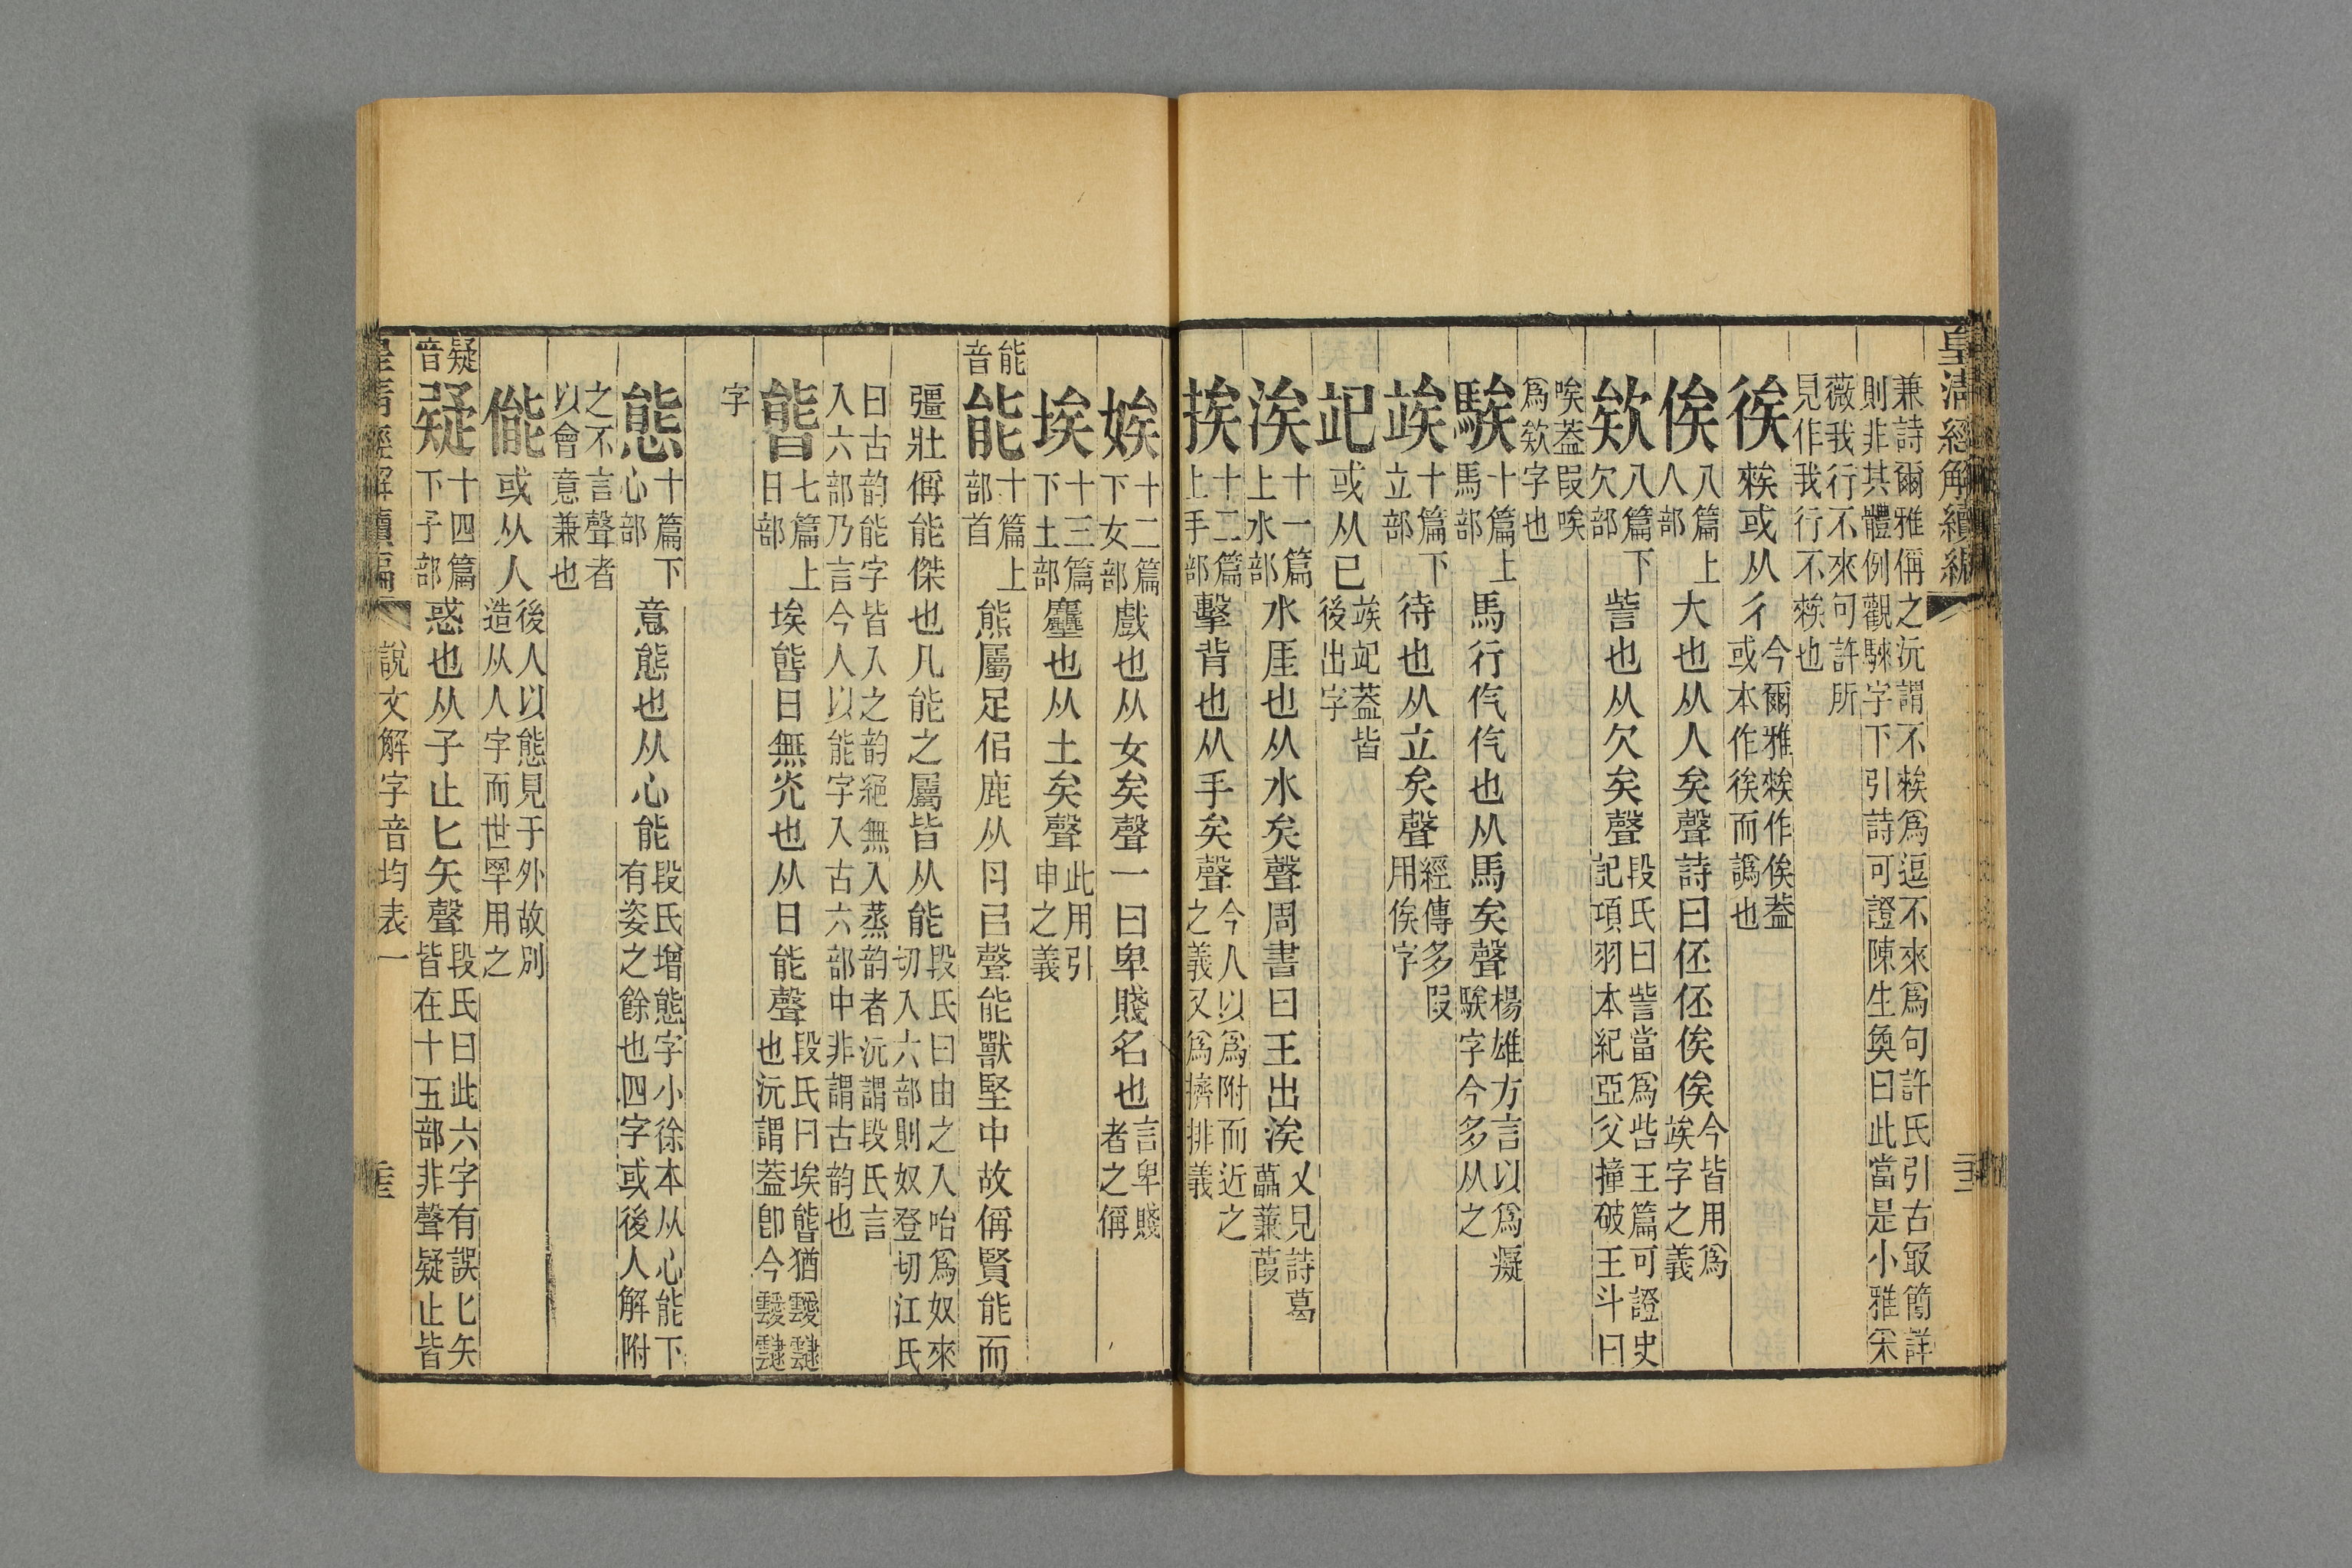 皇清經解續編
兼詩爾雅偁之沅謂不𥏳爲逗不來爲句許氏引古㝡簡詳
則非其體例觀騋字下引詩可證陳生奐曰此當是小雅采
薇我行不來句許所
見作我行不𥏳也
徯 𥏳或从彳 今爾雅𥏳作俟蓋
或本作徯而譌也
俟 八篇上
人部 大也从人矣聲詩曰伾伾俟俟 今皆用爲
竢字之義
欸 八篇下
欠部 訾也从欠矣聲 段氏曰訾當爲呰玉篇可證史
記項羽本紀亞父撞破玉斗曰
唉葢叚唉
爲欸字也
騃 十篇上
馬部 馬行仡仡也从馬矣聲 楊雄方言以爲癡
騃字今多从之
竢 十篇下
立部 待也从立矣聲 經傳多叚
用俟字
𥩳 或从巳 竢𥩳葢皆
後出字
涘 十一篇
上水部 水厓也从水矣聲周書曰王出涘 又見詩葛
藟蒹葭
挨 十二篇
上手部 擊背也从手矣聲 今人以爲附而近之
之義又爲擠排義
娭 十二篇
下女部 戲也从女矣聲一曰卑賤名也 言卑賤
者之偁
埃 十三篇
下土部 塵也从土矣聲 此用引
申之義
能音 能 十篇上
部首 熊屬足佀鹿从肉㠯聲能獸堅中故偁賢能而
彊壯偁能傑也凡能之屬皆从能 段氏曰由之入咍爲奴來
切入六部則奴登切江氏
曰古韵能字皆入之韵絕無入蒸韵者沅謂段氏言
入六部乃言今人以能字入古六部中非謂古韵也
㫲 七篇上
日部 埃㫲日無光也从日能聲 段氏曰埃㫲猶靉靆
也沅謂葢卽今靉靆
字
態 十篇下
心部 意態也从心能 段氏增態字小徐本从心能下
有姿之餘也四字或後人解附
之不言聲者
以會意兼也
儓 或从人 後人以態見于外故別
造从人字而世罕用之
疑音 疑 十四篇
下子部 惑也从子止匕矢聲 段氏曰此六字有誤匕矢
皆在十五部非聲疑止皆
皇清經解續編
說文解字音均表一